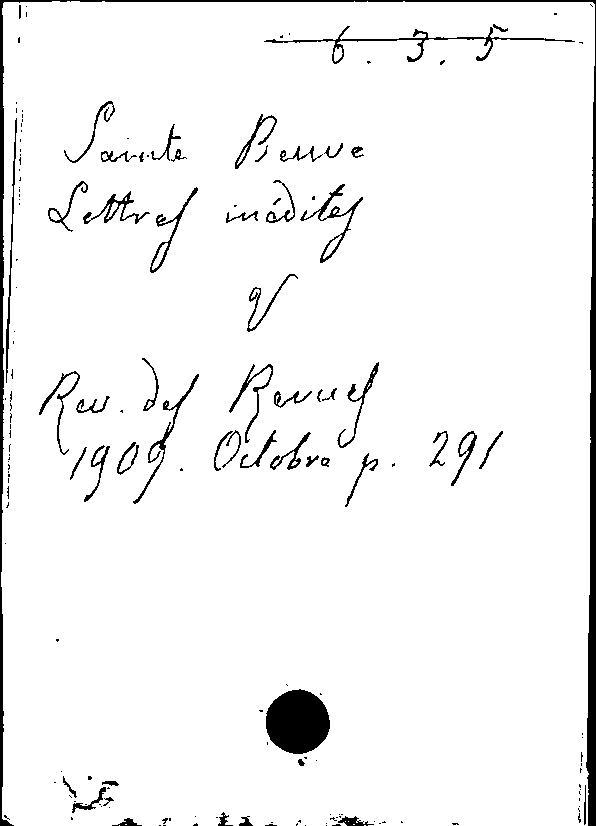 6. 3. 5
Sainte Beuve
Lettres inédites
V
Rev. des Revues
1909. Octobre p. 291